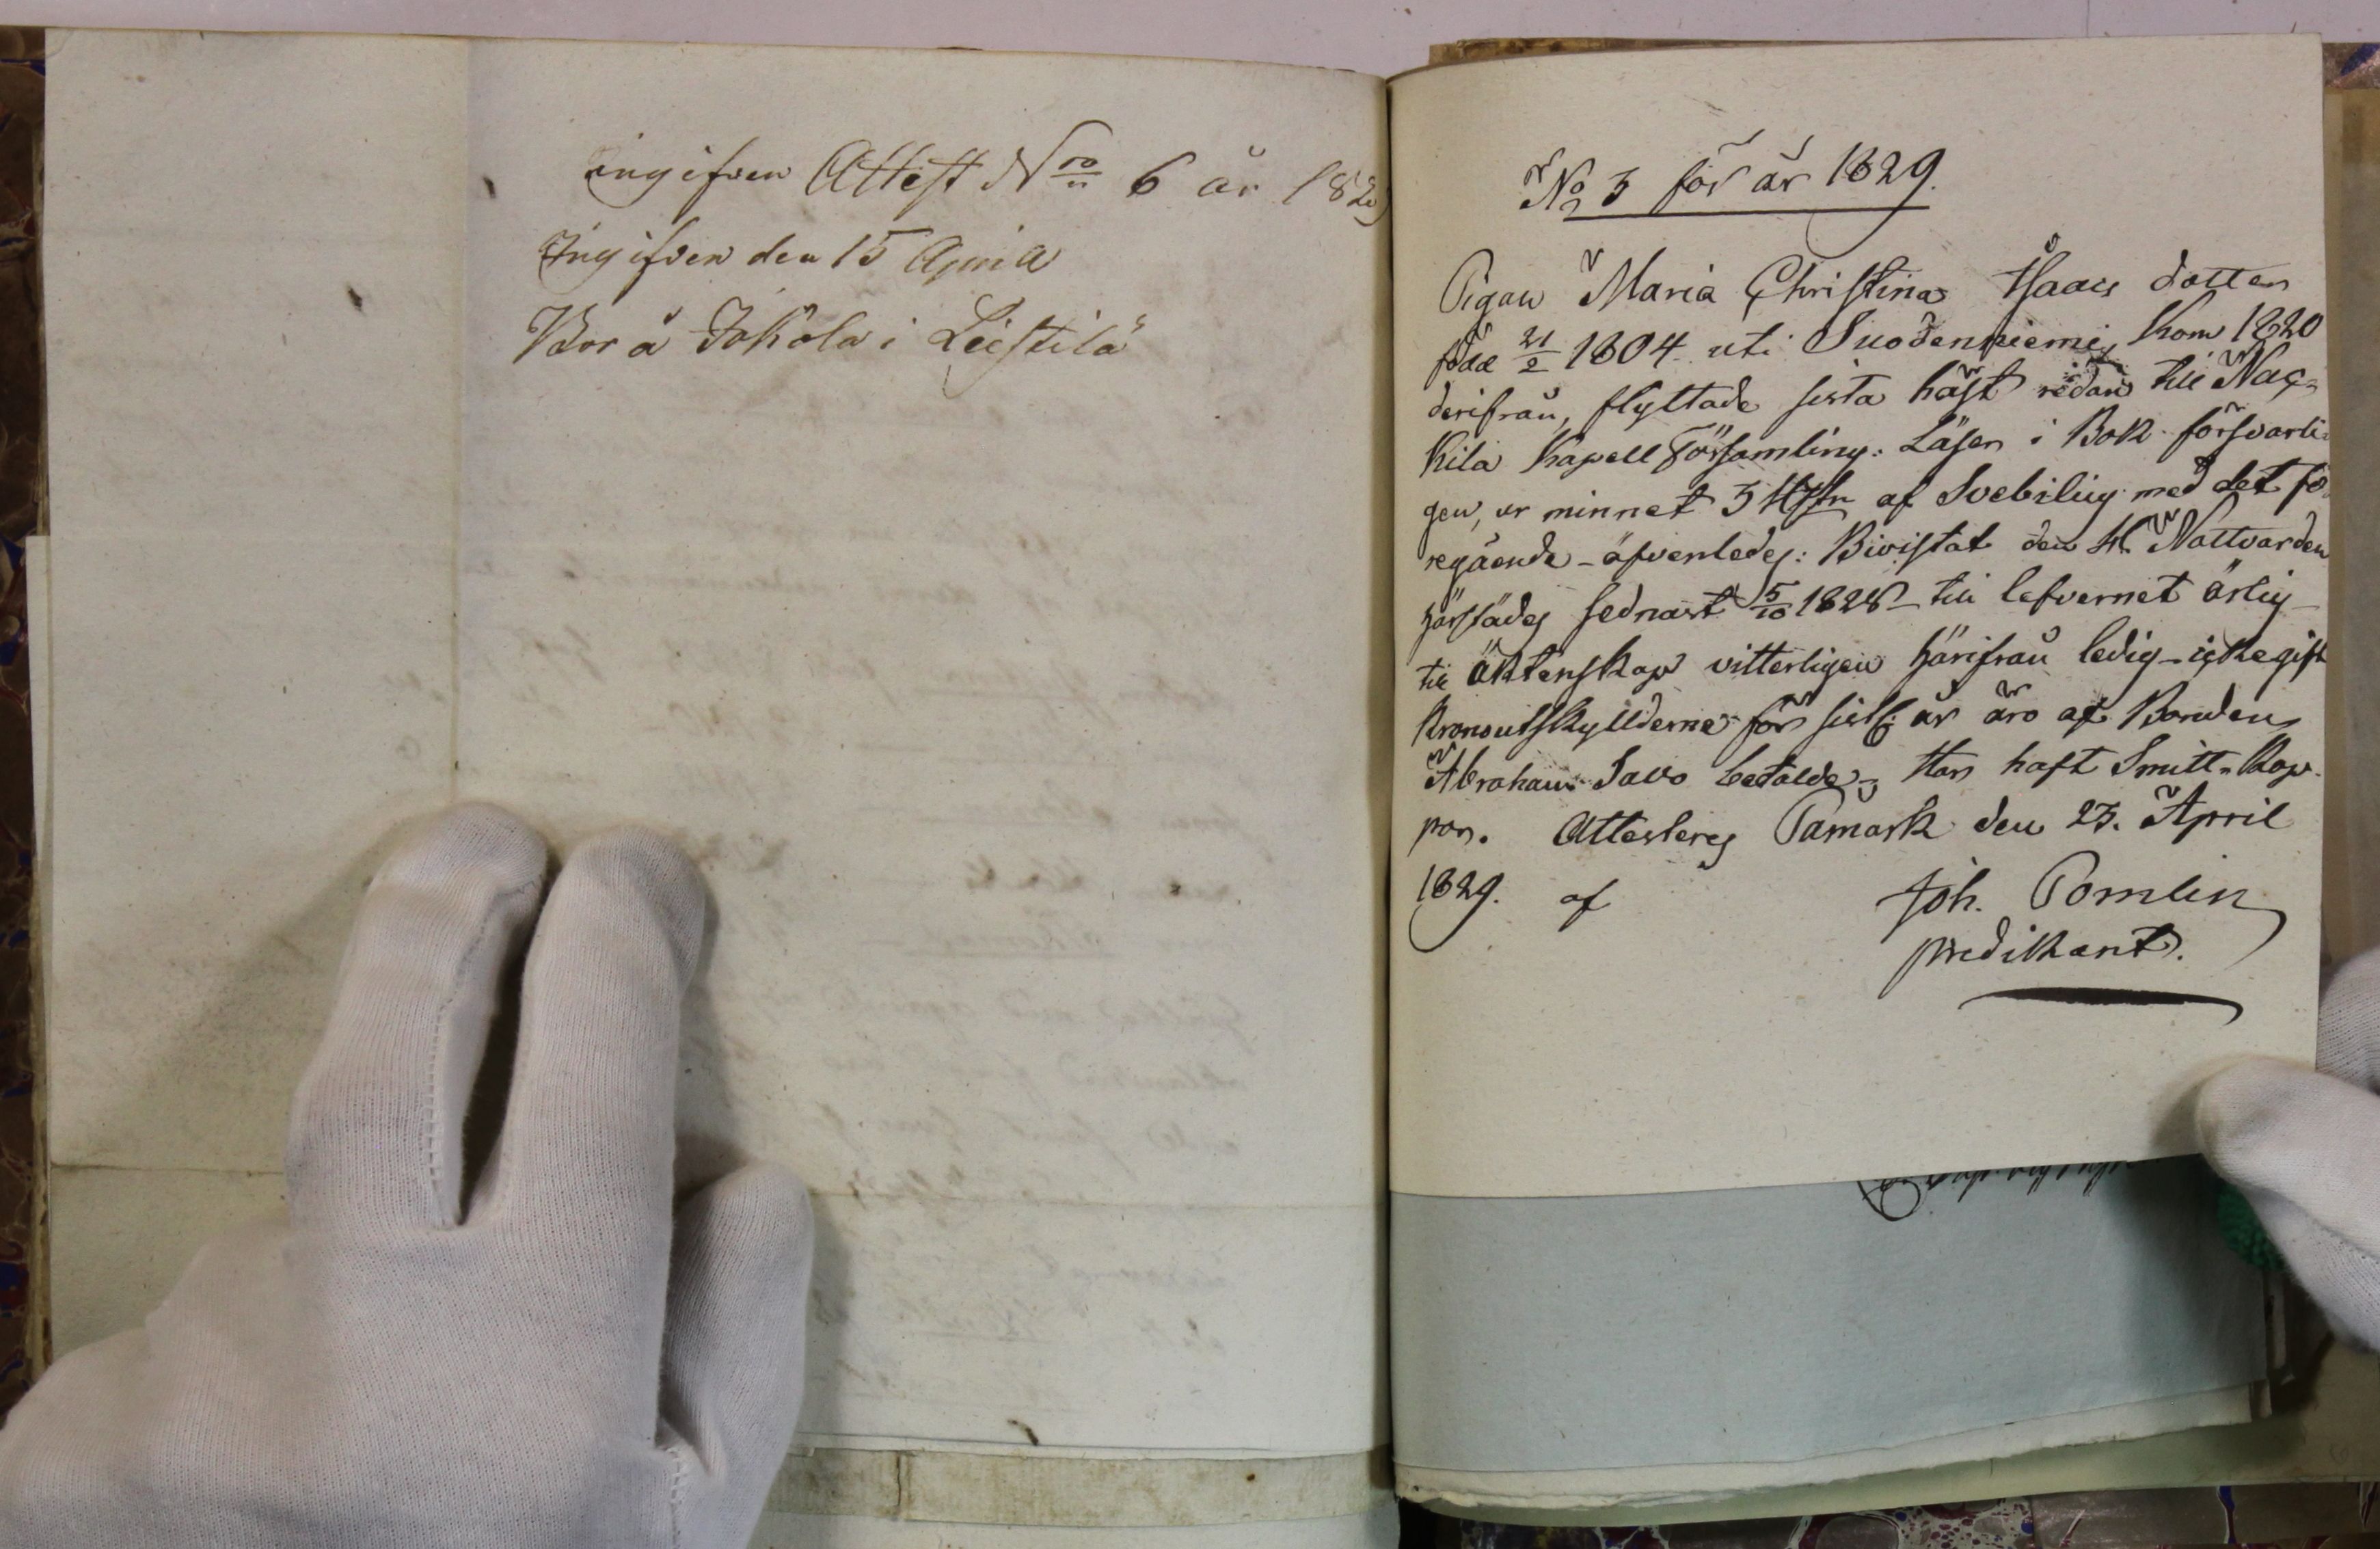 ingifven Attest Nro 6 år 1829
Ingifven den 15 April
Bor å Jokola i Leistilä
No 3 för år 1829.
Pigan Maria Christina Isaacs dotter
född 21/2 1804 uti Suodenniemi, kom 1820
derifrån, flyttade sista häst redan till Nac-
kila Kapell Församling: Läser i Bok försvarli-
gen, ur minnet 3 HStn af Svebilig med det fö-
regående - äfvenledes: Bivistat den H. Nattvarden
härstädes sednast 5/10 1828 - till lefvernet ärlig -
till äktenskap vitterligen härifrån ledig - icke gift
Kronoutskyllderne för sistl: år äro af Bonden
Abraham Savo betalde; Har haft Smitt-Kop-
por. Attesteres Påmark den 23. April
1829. af Joh. Pomlin
predikant.